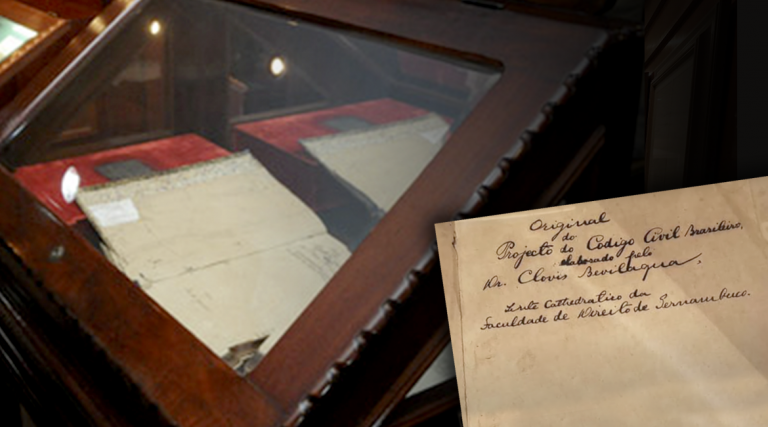 Original
do
Projecto do Codigo Civil Brasileiro,
elaborado pelo
Dr. Clovis Bevilaqua,
Lente Cathedratico da
Faculdade de Direito de Pernambuco.